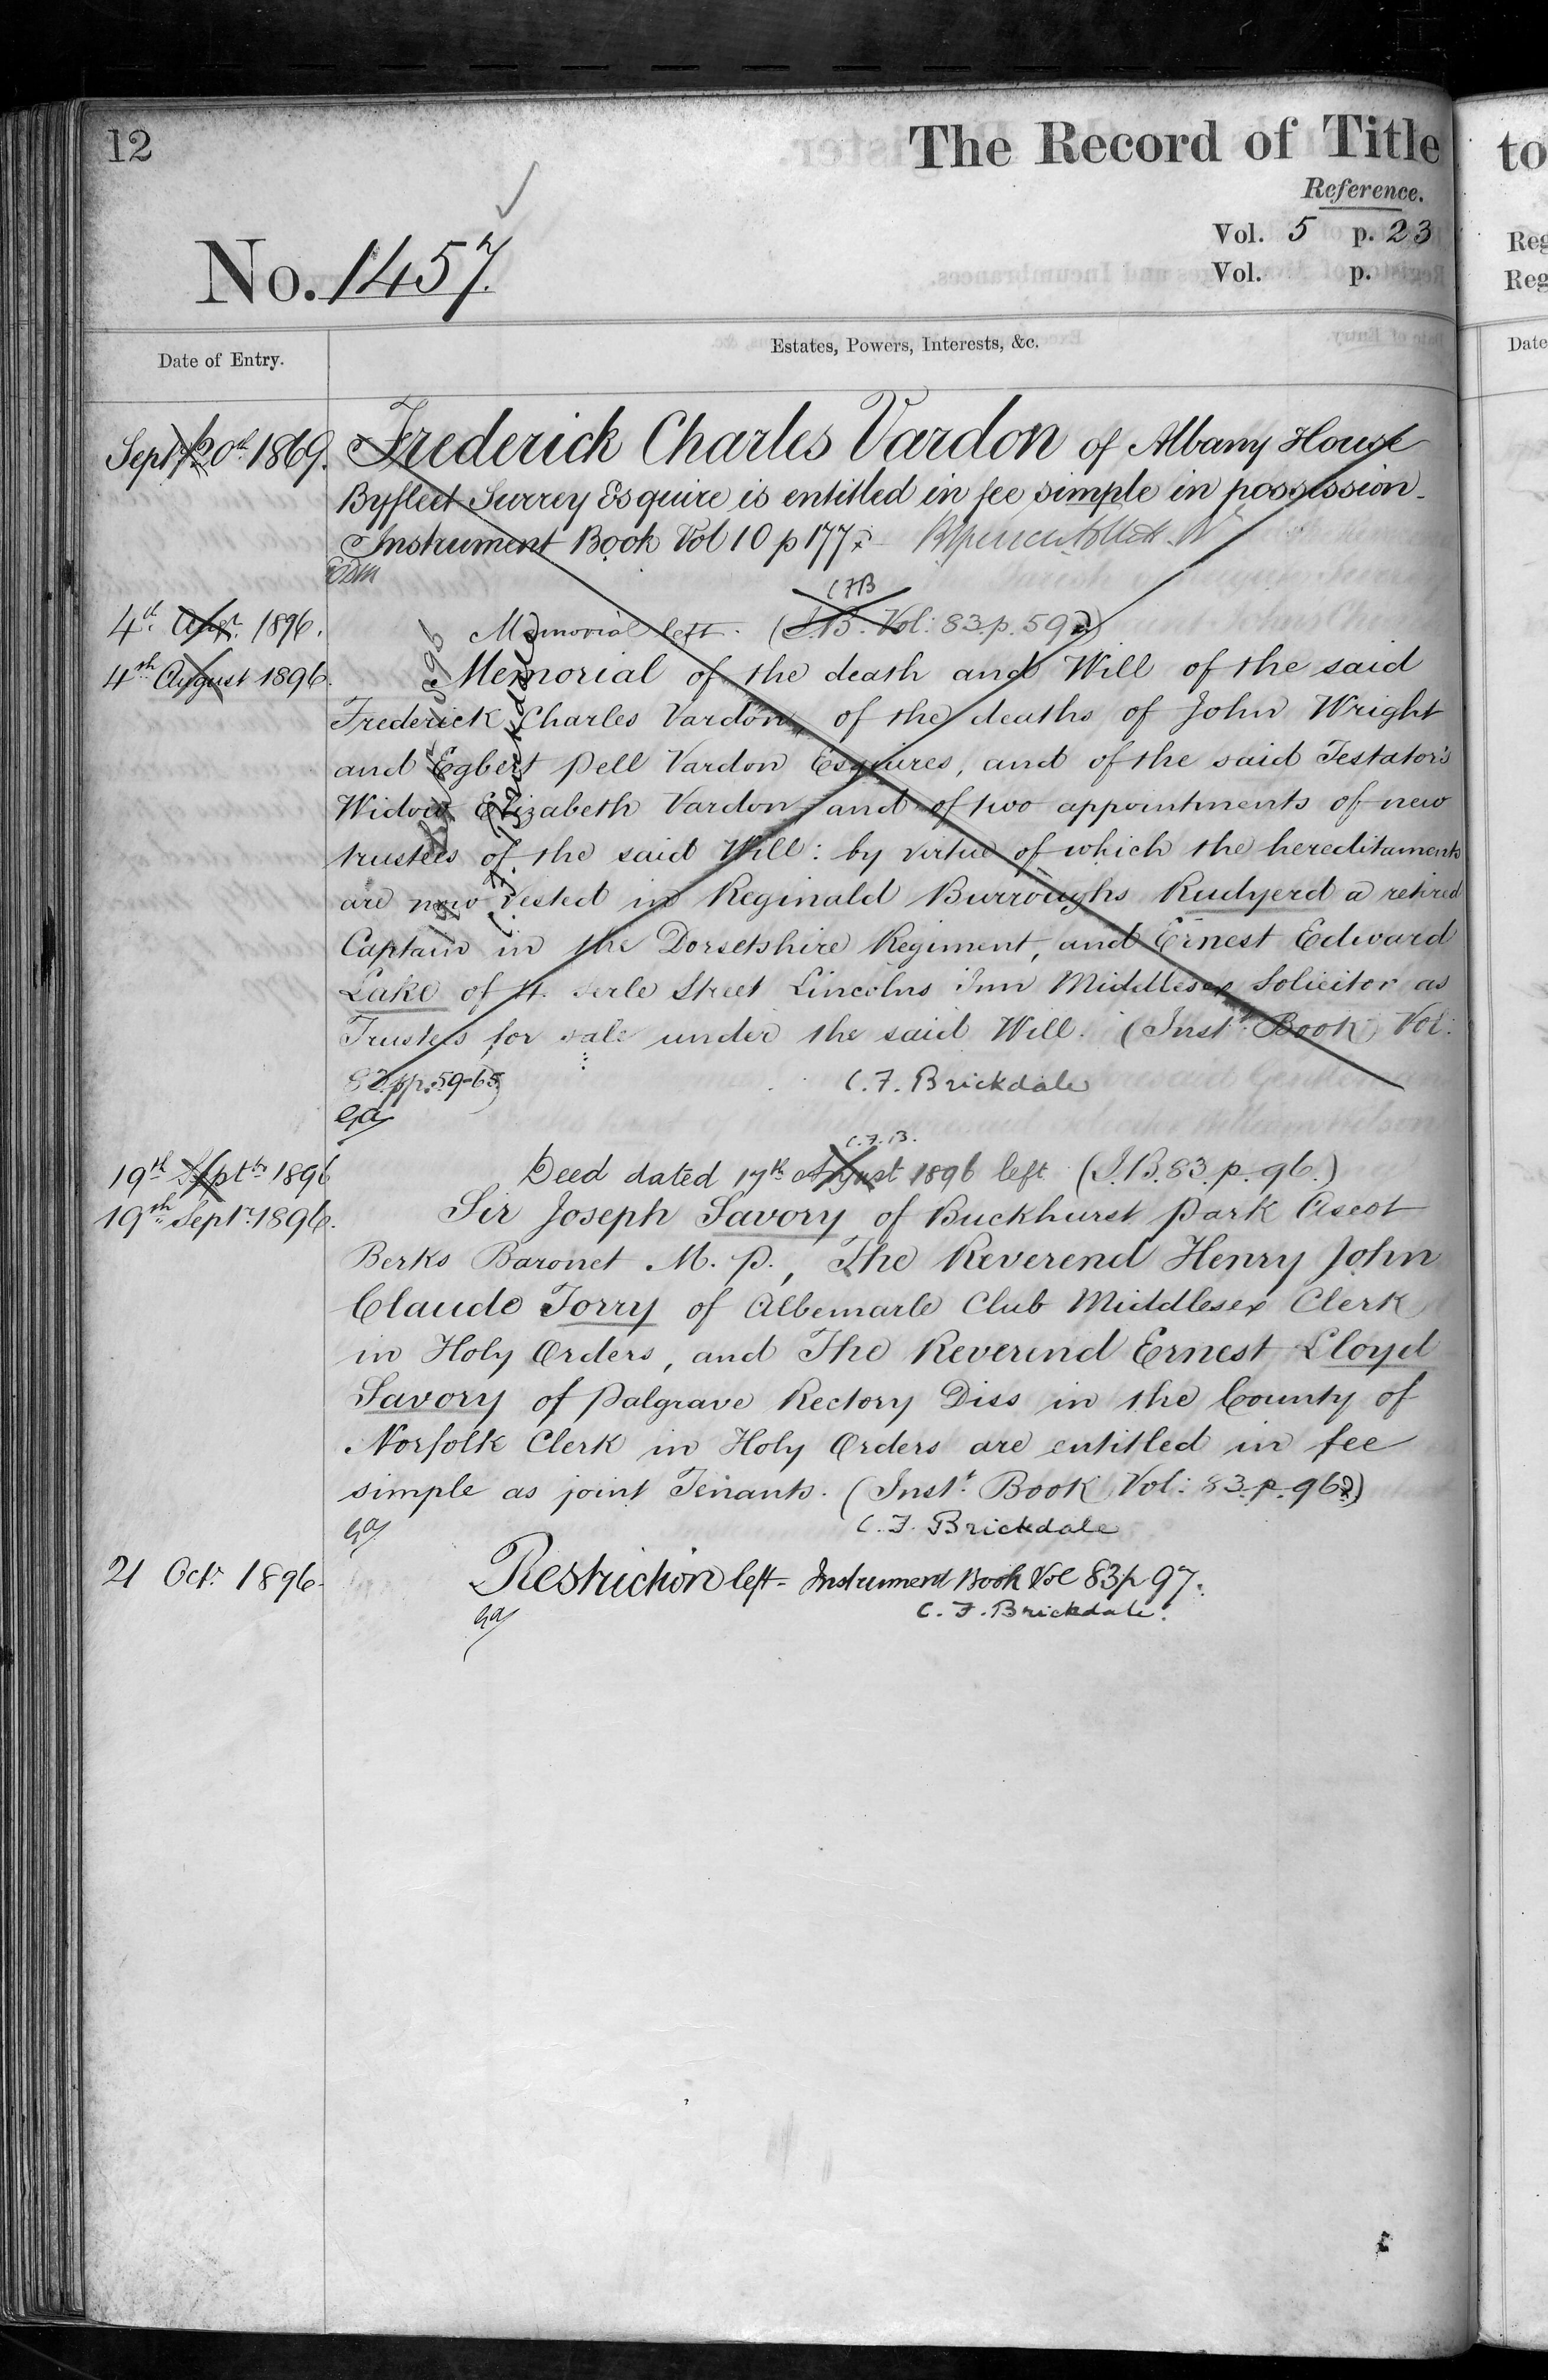 12
The Record of Title
Reference.
Vol. 5 p. 23
Vol. p.
No. 1457.
Date of Entry.
Estates, Powers, Interests, &c.
Septr 20th 1869.
Frederick Charles Vardon of Albany House
Byfleet Surrey Esquire is entitled in fee simple in possession.
Instrument Book Vol 10 p 177
CFB
4th Augt. 1896.
Memorial left. (I.B. Vol: 83. p. 59)
4th August 1896.
Memorial of the death and Will of the said
Frederick Charles Vardon, of the deaths of John Wright
and Egbert Pell Vardon Esquires, and of the said Testator's
Widow Elizabeth Vardon and of two appointments of new
trustees of the said Will: by virtue of which the hereditaments
are now vested in Reginald Burroughs Rudyerd a retired
Captain in the Dorsetshire Regiment, and Ernest Edward
Lake of 4 Serle Street Lincolns Inn Middlesex Solicitor as
Trustees for sale under the said Will. (Instt. Book, Vol:
83. pp. 59-65)
C. F. Brickdale
1896
C. F. Brickdale
C.F.B.
19th Septbr 1896
Deed dated 17th August 1896 left (I.B. 83. p. 96.)
19th Septr. 1896.
Sir Joseph Savory of Buckhurst Park Ascot
Berks Baronet M. P., The Reverend Henry John
Claude Torry of Albemarle Club Middlesex Clerk
in Holy Orders, and The Reverend Ernest Lloyd
Savory of Palgrave Rectory Diss in the County of
Norfolk Clerk in Holy Orders are entitled in fee
simple as joint Tenants. (Instt. Book, Vol: 83. p. 96)
C. F. Brickdale
21 Octr. 1896.
Restriction left - Instrument Book Vol 83 p 97.
C. F. Brickdale.
to
Reg
Reg
Date